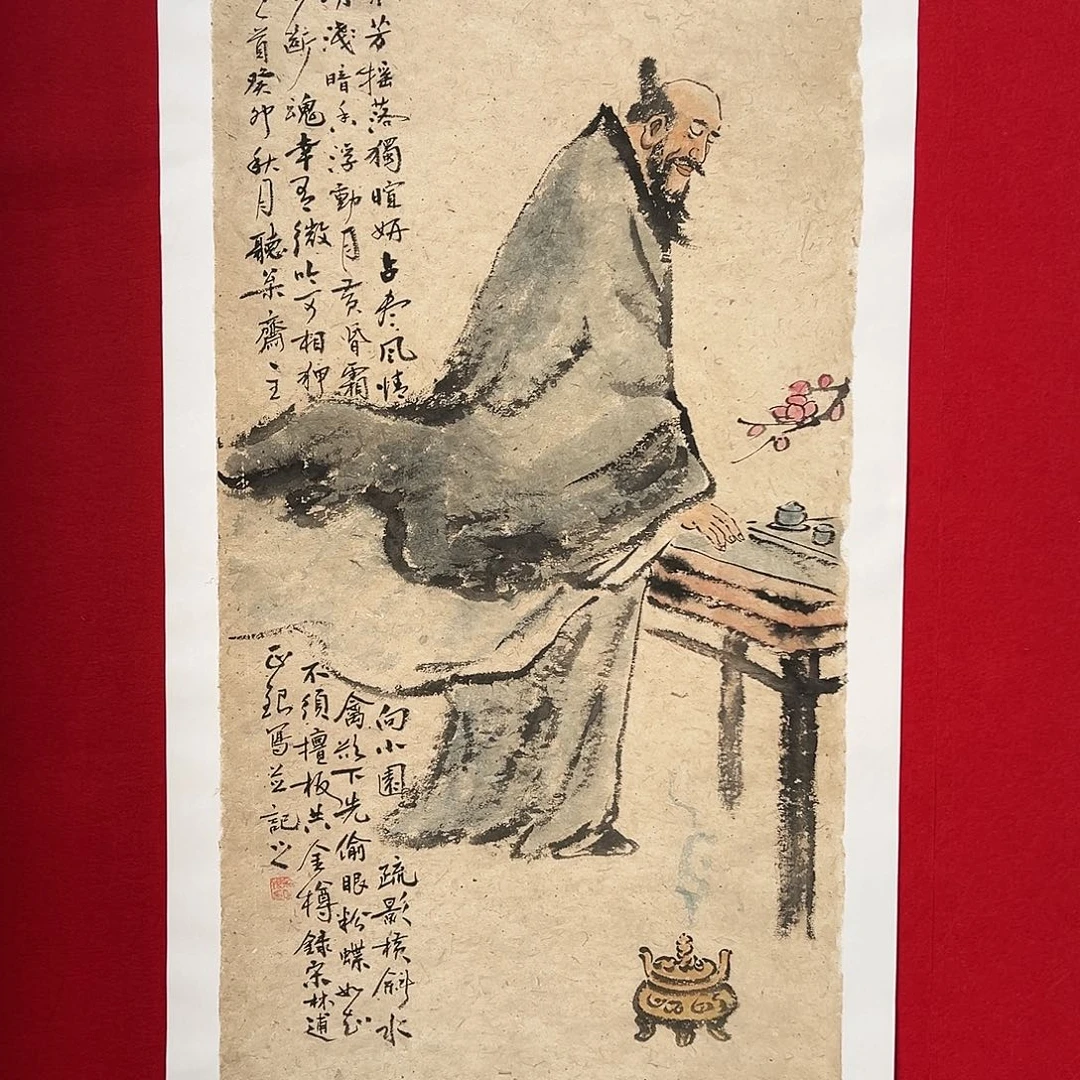 芳搖落獨暄妍占盡風情向小園疏影橫斜水
淺暗香浮動月黃昏霜禽欲下先偷眼粉蝶如知
斷魂幸有微吟可相狎不須檀板共金樽錄宋林逋
首癸卯秋月聽葉齋主正銀寫並記之